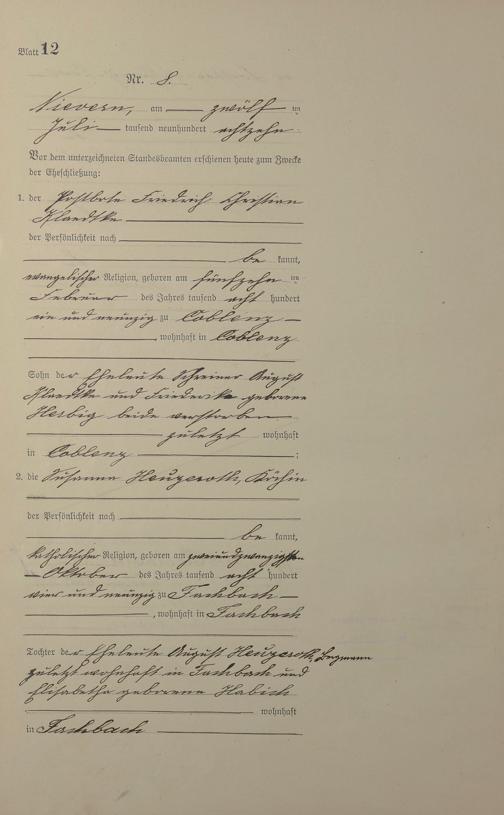 Blatt 12
Nr. 8.
Nievern, am zwölf ten
Juli tausend neunhundert achtzehn
Vor dem unterzeichneten Standesbeamten erschienen heute zum Zwecke
der Eheschließung:
1. der Postbote Friedrich Christian
Klaedtke
der Persönlichkeit nach
be kannt,
evangelischer Religion, geboren am fünfzehn ten
Februar des Jahres tausend acht hundert
ein und neunzig zu Coblenz
, wohnhaft in Coblenz
Sohn der Eheleute Schreiner August
Klaedtke und Friederike geborene
Herbig beide verstorben
zuletzt wohnhaft
in Coblenz ;
2. die Susanna Heuzeroth, Köchin
der Persönlichkeit nach
be kannt,
katholischer Religion, geboren am zweiundzwanzigsten
Oktober des Jahres tausend acht hundert
vier und neunzig zu Fachbach
, wohnhaft in Fachbach
Tochter der Eheleute August Heuzeroth, Bergmann
zuletzt wohnhaft in Fachbach und
Elisabetha geborene Habich
wohnhaft
in Fachbach